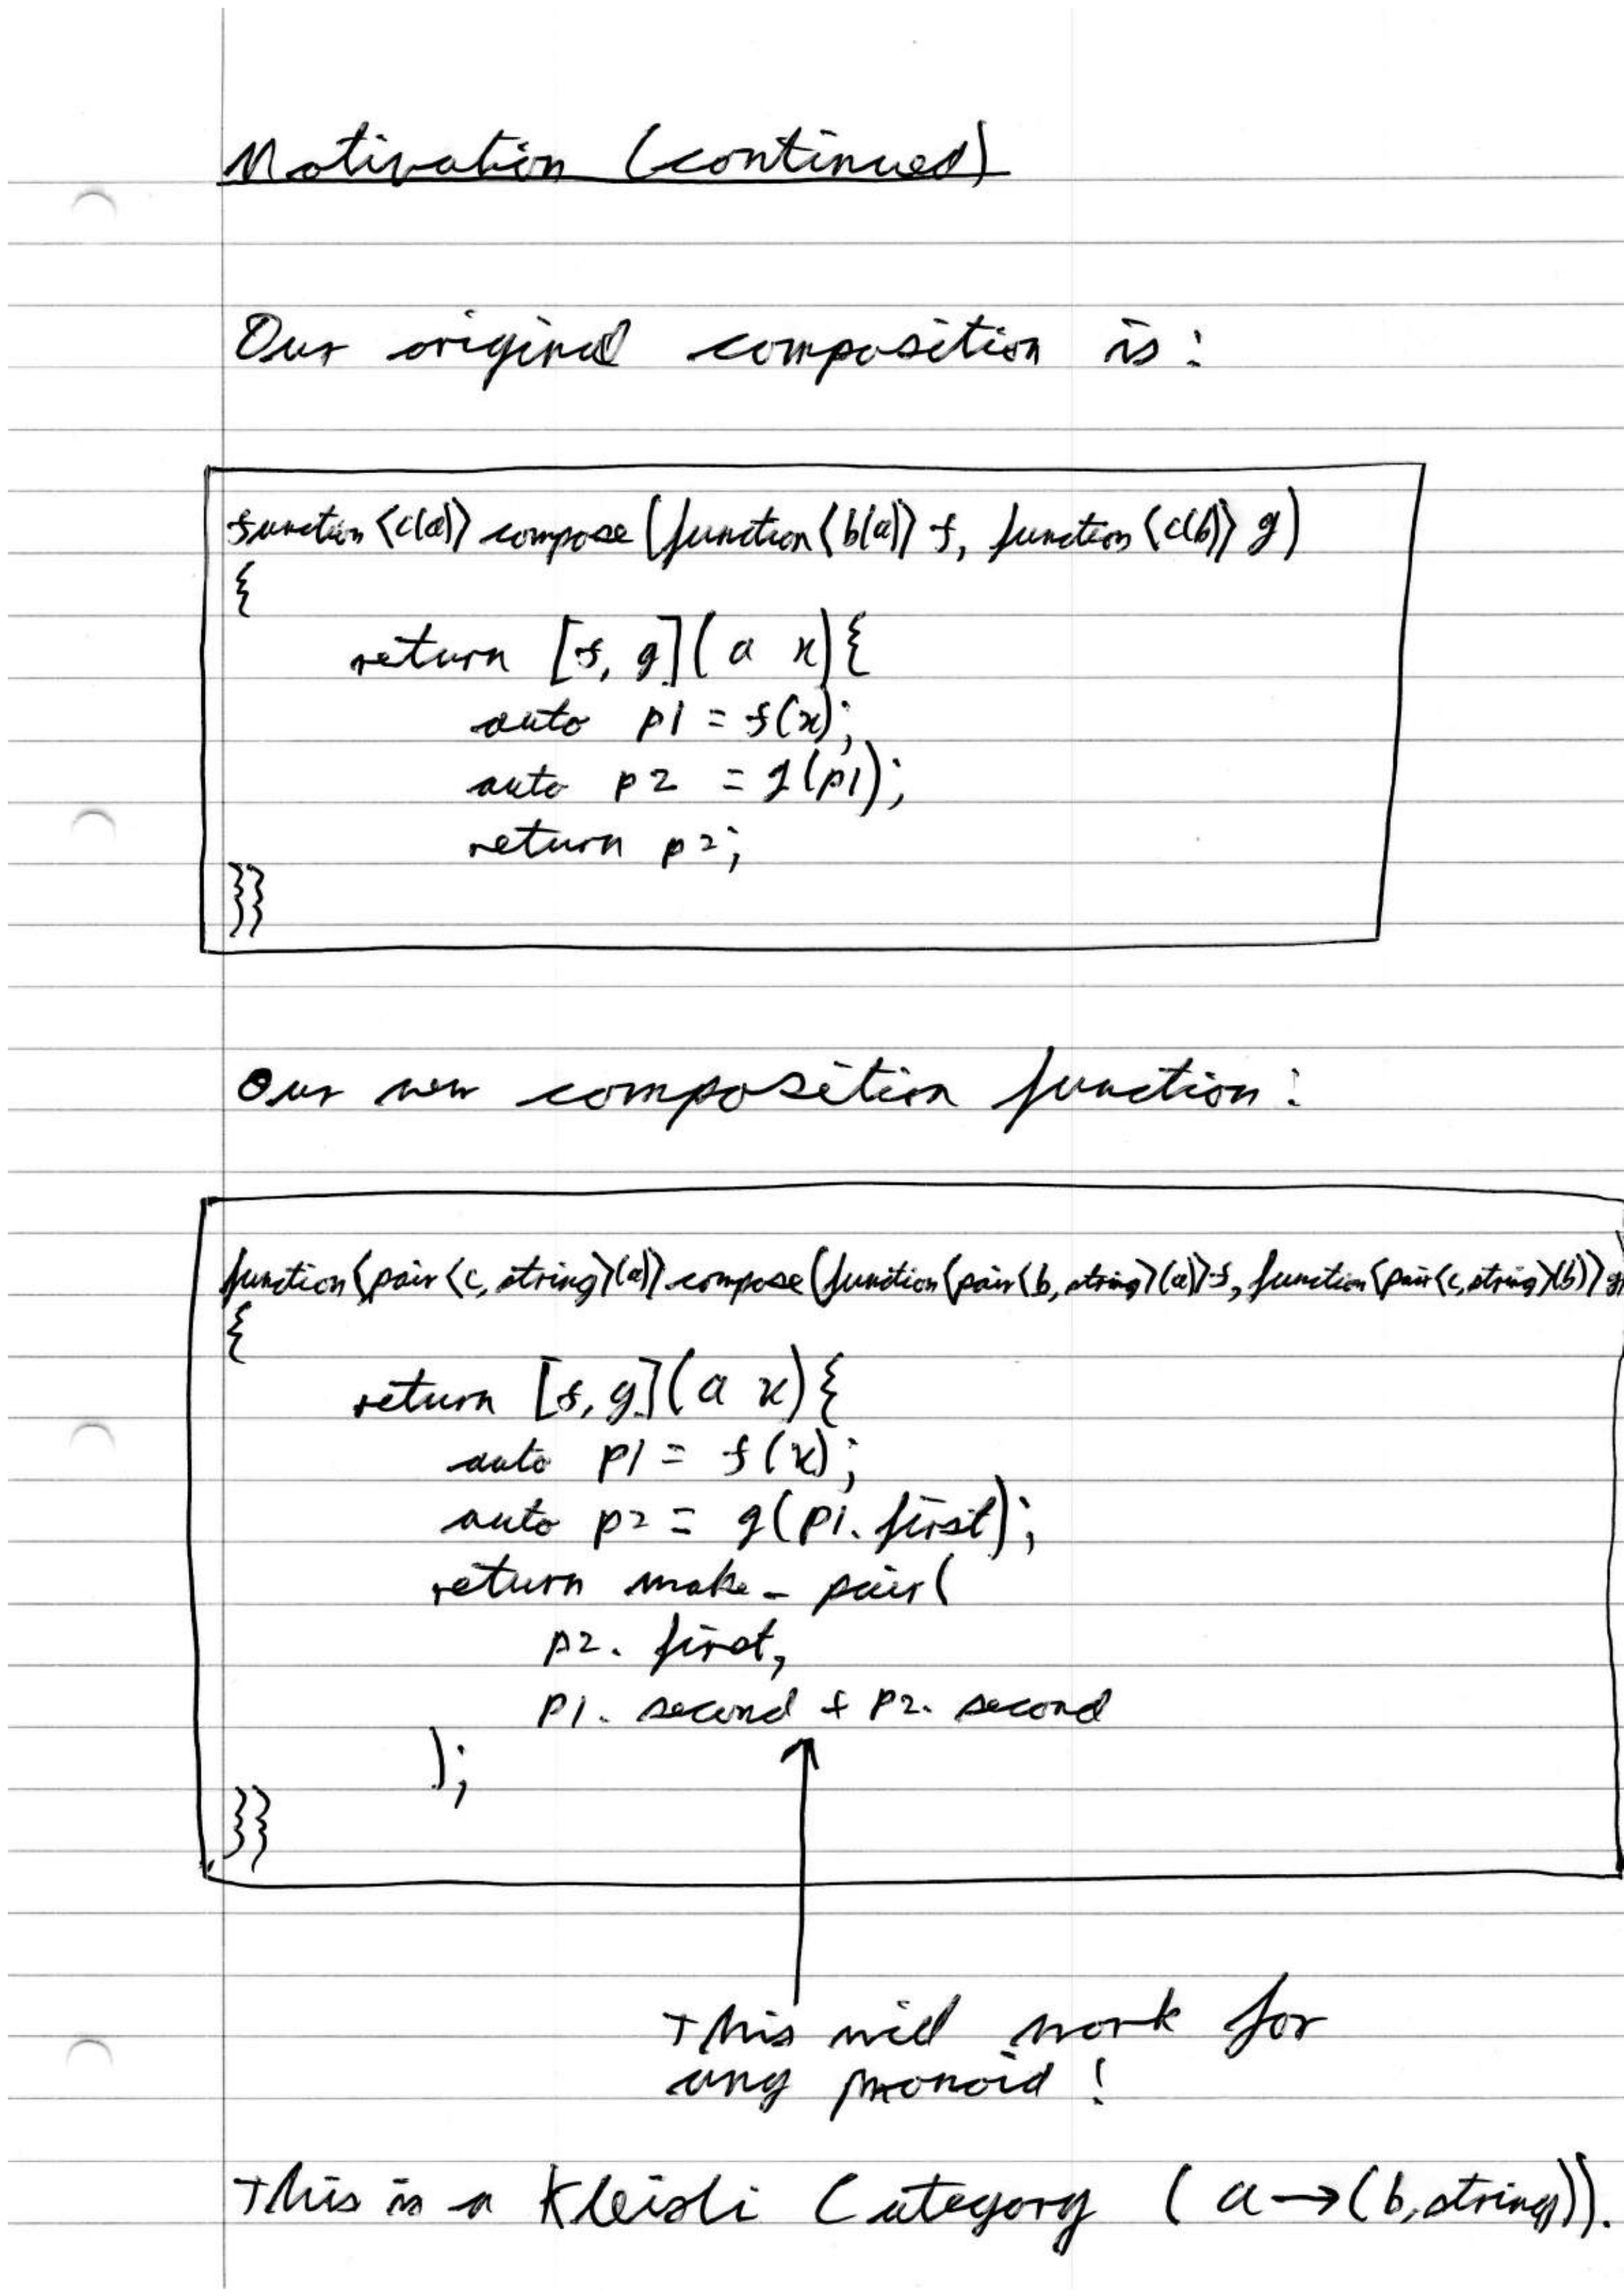 Motivation (continued)
Our original composition is:
function <c(a)> compose (function <b(a)> f, function <c(b)> g)
{
return [f, g](a x){
auto p1 = f(x);
auto p2 = g(p1);
return p2;
}}
Our new composition function:
function <pair <c, string>(a)> compose (function <pair <b, string>(a)> f, function <pair <c, string>(b)> g)
{
return [f, g](a x){
auto p1 = f(x);
auto p2 = g(p1.first);
return make_pair(
p2.first,
p1.second + p2.second
);
}}
This will work for
any monoid!
This is a Kleisli Category (a → (b, string)).